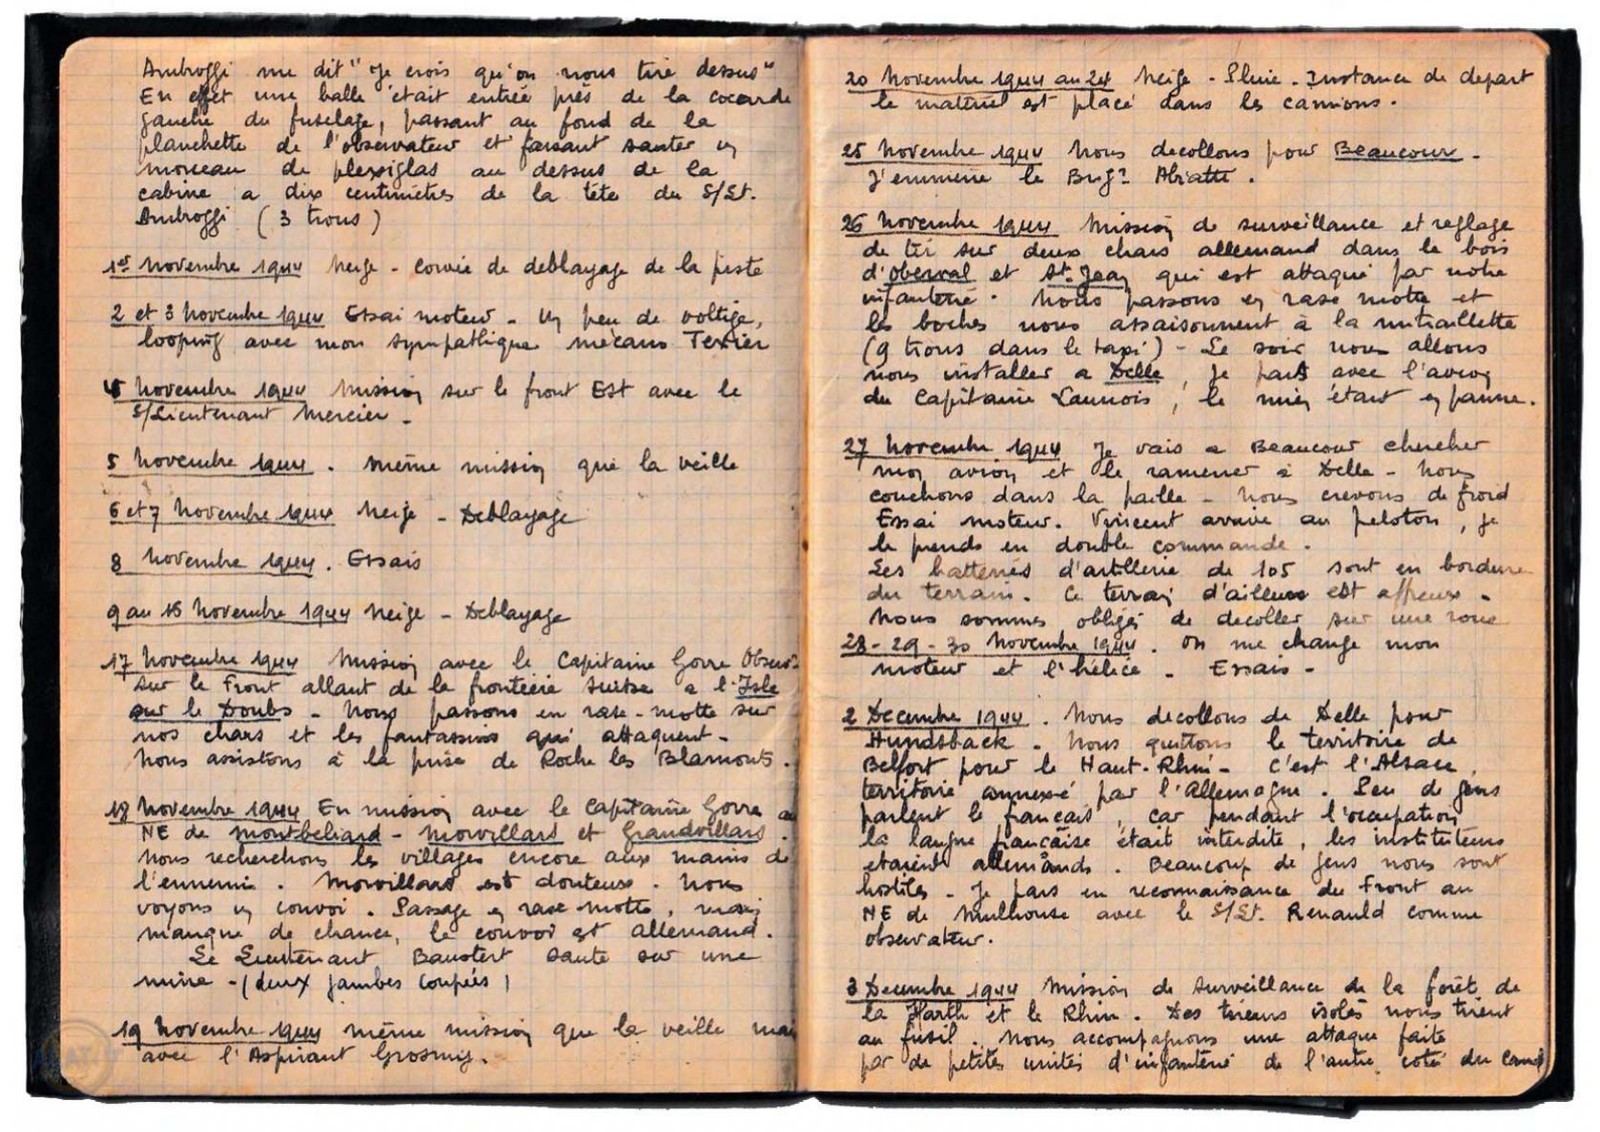 Ambroggi me dit "Je crois qu'on nous tire dessus"
En effet une balle était entrée près de la cocarde
gauche du fuselage, passant au fond de la
planchette de l'observateur et faisant sauter un
morceau de plexiglas au dessus de la
cabine a dix centimètres de la tête du S/Lt.
Ambroggi (3 trous)
1er Novembre 1944 Neige - Corvée de deblayage de la piste
2 et 3 Novembre 1944 Essai moteur - Un peu de voltige,
looping avec mon sympathique mécano Texier
4 Novembre 1944 Mission sur le front Est avec le
S/Lieutenant Mercier -
5 Novembre 1944. Même mission que la veille
6 et 7 Novembre 1944 Neige - Deblayage
8 Novembre 1944. Essais
9 au 16 Novembre 1944 Neige - Deblayage
17 Novembre 1944 Mission avec le Capitaine Gorre Observ.
sur le Front allant de la frontière suisse a l'Isle
sur le Doubs - Nous passons en rase-motte sur
nos chars et les fantassins qui attaquent -
Nous assistons à la prise de Roche les Blamonts.
18 Novembre 1944 En mission avec le Capitaine Gorre au
NE de Montbeliard - Morvillars et Grandvillars.
Nous recherchons les villages encore aux mains de
l'ennemi. Morvillars est douteux. Nous
voyons un convoi. Passage en rase motte, mais
manque de chance, le convoi est allemand.
Le Lieutenant Baustert saute sur une
mine - (deux jambes coupées)
19 Novembre 1944 même mission que la veille mais
avec l'Aspirant Grosmy.
20 Novembre 1944 au 24 Neige - Pluie - Instance de depart
le matériel est placé dans les camions.
25 Novembre 1944 Nous decollons pour Beaucour -
J'emmène le Brig. Abiatte.
26 Novembre 1944 Mission de surveillance et reglage
de tir sur deux chars allemand dans le bois
d'Oberval et St. Jean qui est attaqué par notre
infanterie. Nous passons en rase motte et
les boches nous assaisonnent à la mitraillette
(9 trous dans le taxi) - Le soir nous allons
nous installer a Delle, je pars avec l'avion
du Capitaine Launois, le mien étant en panne.
27 Novembre 1944 Je vais a Beaucour chercher
mon avion et le ramener à Delle - Nous
couchons dans la paille - Nous crevons de froid
Essai moteur. Vincent arrive au peloton, je
le prends en double commande.
Les batteries d'artillerie de 105 sont en bordure
du terrain. Ce terrain d'ailleurs est affreux -
Nous sommes obligés de decoller sur une roue
28 - 29 - 30 Novembre 1944. On me change mon
moteur et l'hélice - Essais -
2 Decembre 1944. Nous decollons de Delle pour
Hundsback. Nous quittons le territoire de
Belfort pour le Haut-Rhin - C'est l'Alsace,
territoire annexé par l'Allemagne. Peu de gens
parlent le français, car pendant l'occupation
la langue française était interdite, les instituteurs
etaient allemands. Beaucoup de gens nous sont
hostiles - Je pars en reconnaissance du Front au
NE de Mulhouse avec le S/Lt. Renauld comme
observateur.
3 Decembre 1944 Mission de surveillance de la forêt de
la Harth et le Rhin. Des tireurs isolés nous tirent
au fusil. Nous accompagnons une attaque faite
par de petites unités d'infanterie de l'autre coté du canal